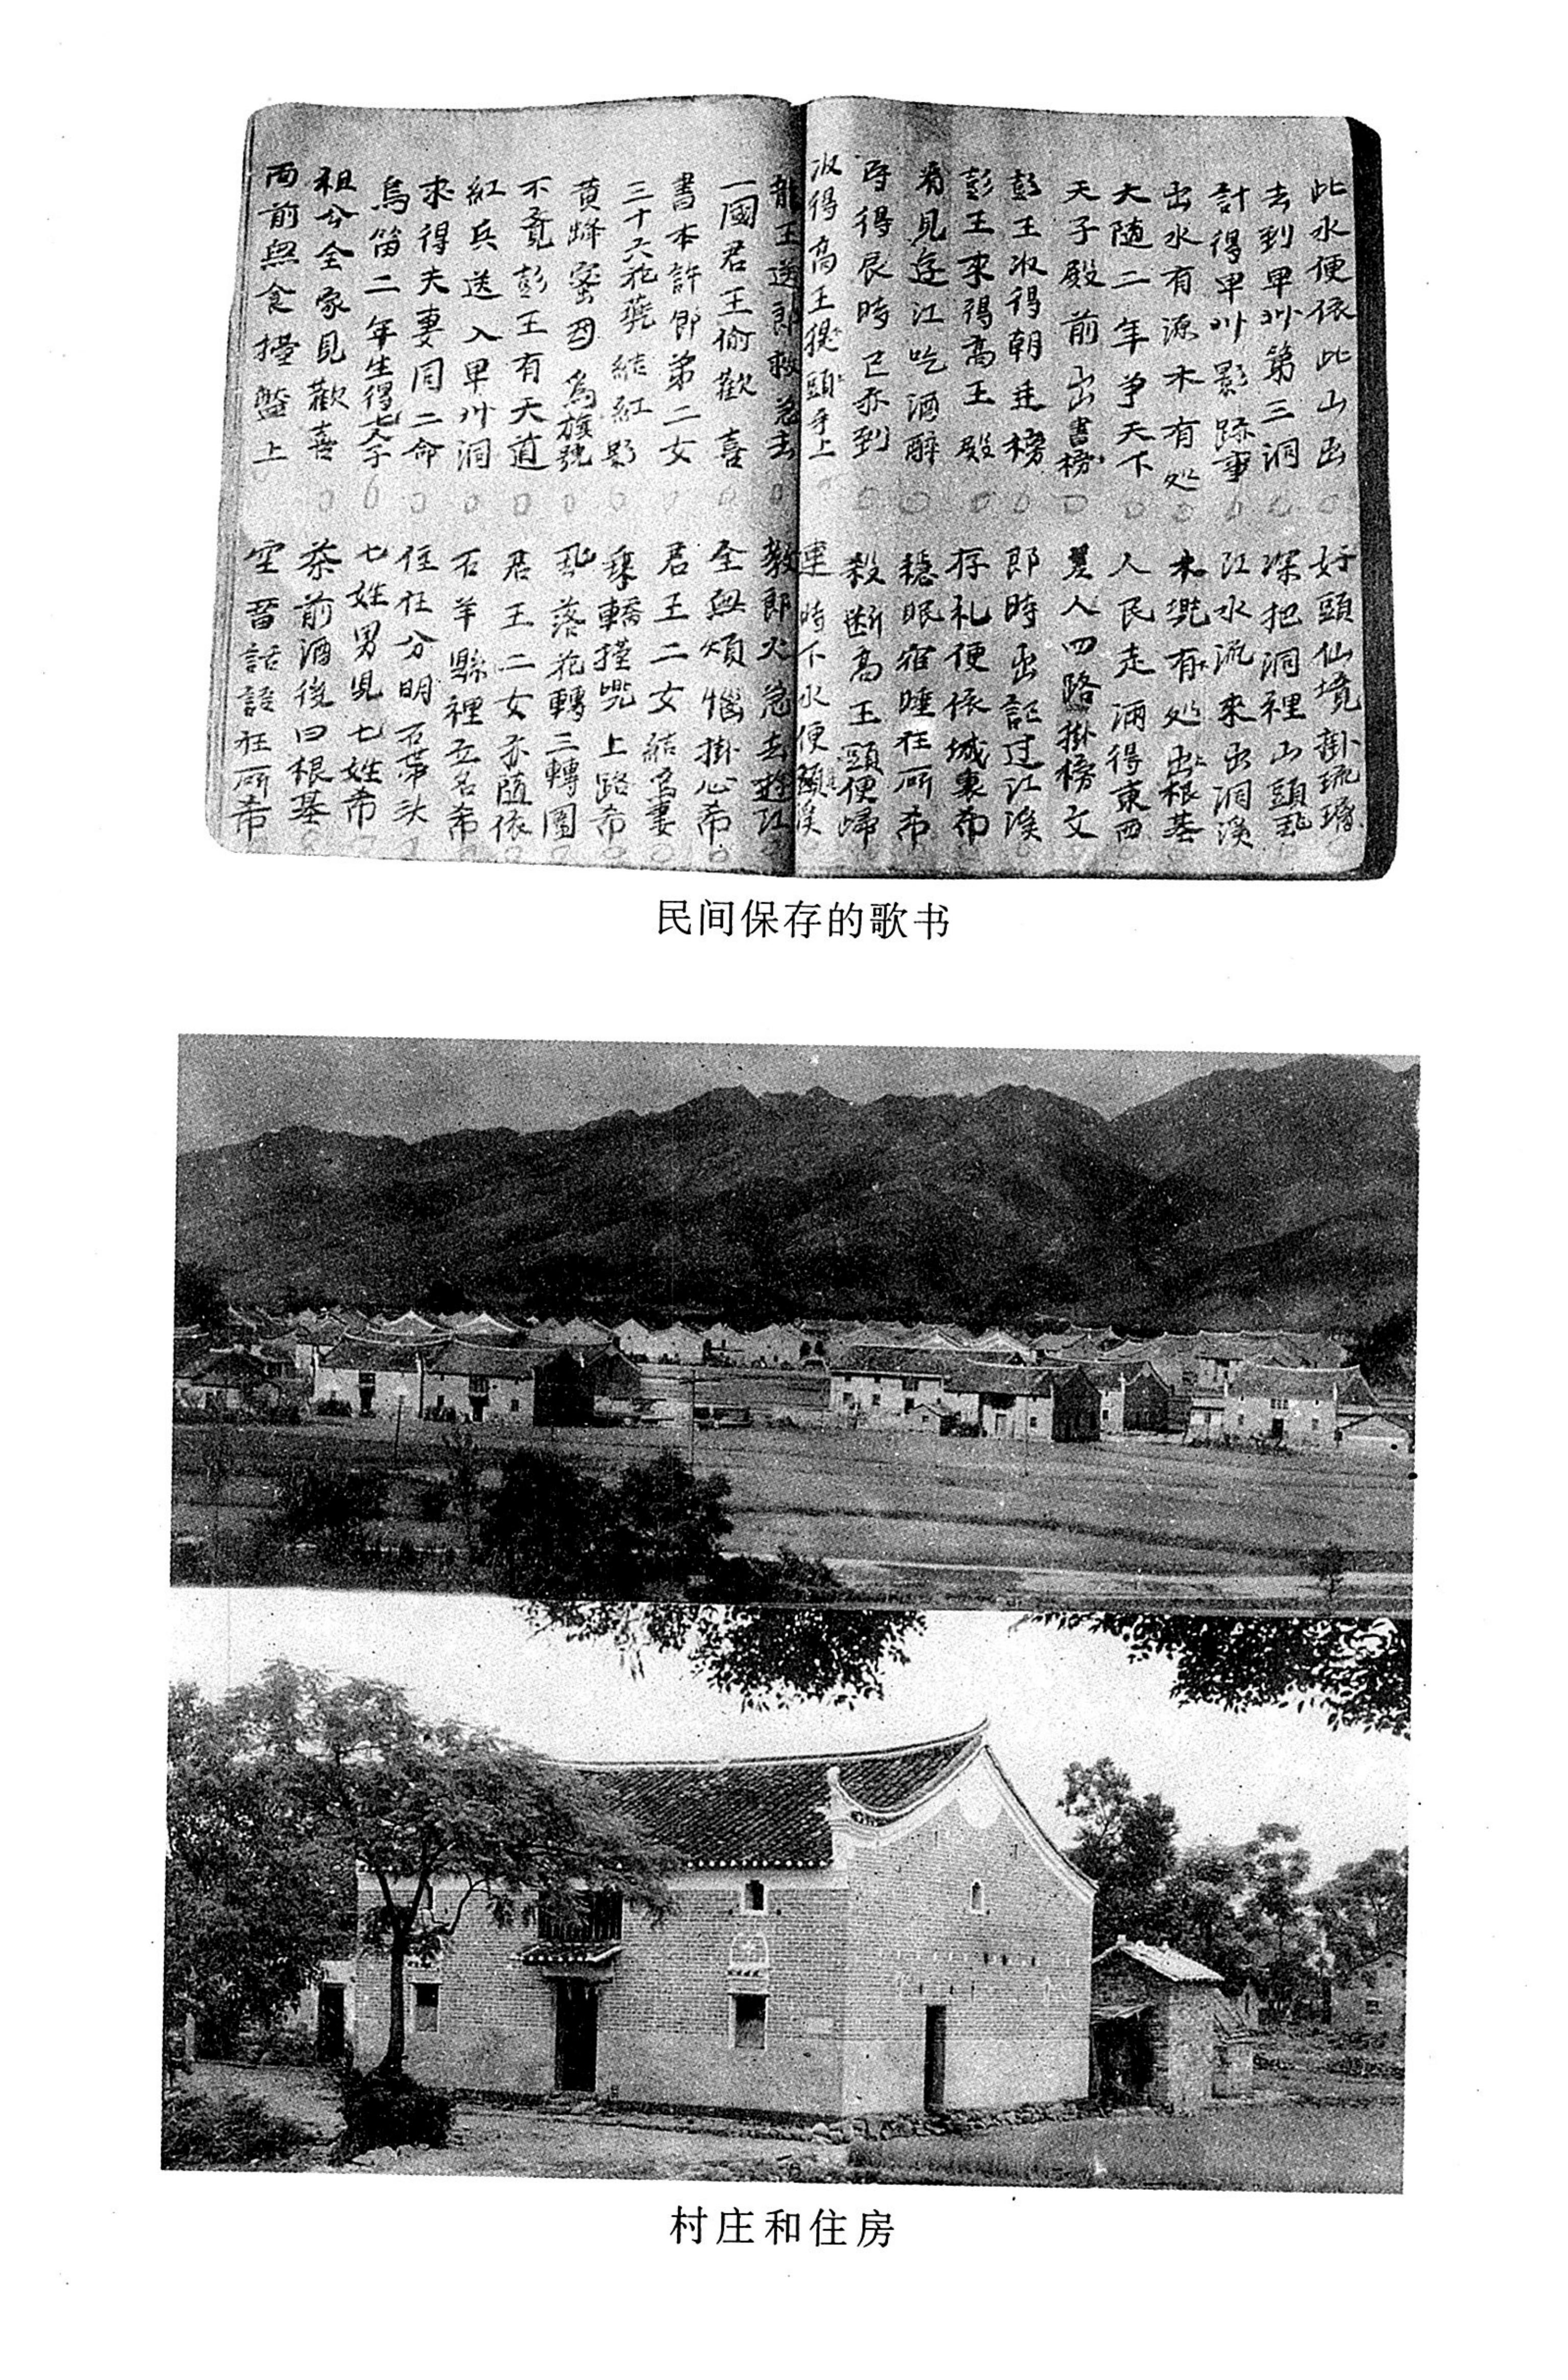 此水便依此山出 好頭仙境掛琉璃
去到早州第三洞 深把洞裡山頭乱
計得早州影跡事 江水流來出洞溪
出水有源木有处 木兜有处出根基
大随二年争天下 人民走滿得東西
天子殿前出書榜 四路掛榜文
彭王收得朝廷榜 郎時出記过江溪
彭王來得高王殿 存礼便依城裏希
看見连江吃酒醉 穩眠宿睡在所希
得辰時已亦到 殺断高王頭便歸
收得高王提頭手上 連時下水便頭溪
龍王送郎救急去 教郎火急去逰江
一國君王偷歡喜 全無煩惱掛心希
書本許郎弟二女 君王二女結為妻
三十六花 結紅影 乘轎 兜上路希
黄蜂蜜母為旗號 乱落花轉三轉圍
不覚彭王有天道 君王二女亦随依
紅兵送入早州洞 石羊縣裡立名希
求得夫妻同二命 住在分明石帶头
鳥笛二年生得七子 七姓男児七姓希
祖公全家見歡喜 茶前酒後曰根基
面前無食擡盤上 空 話語在所希
民间保存的歌书
村庄和住房